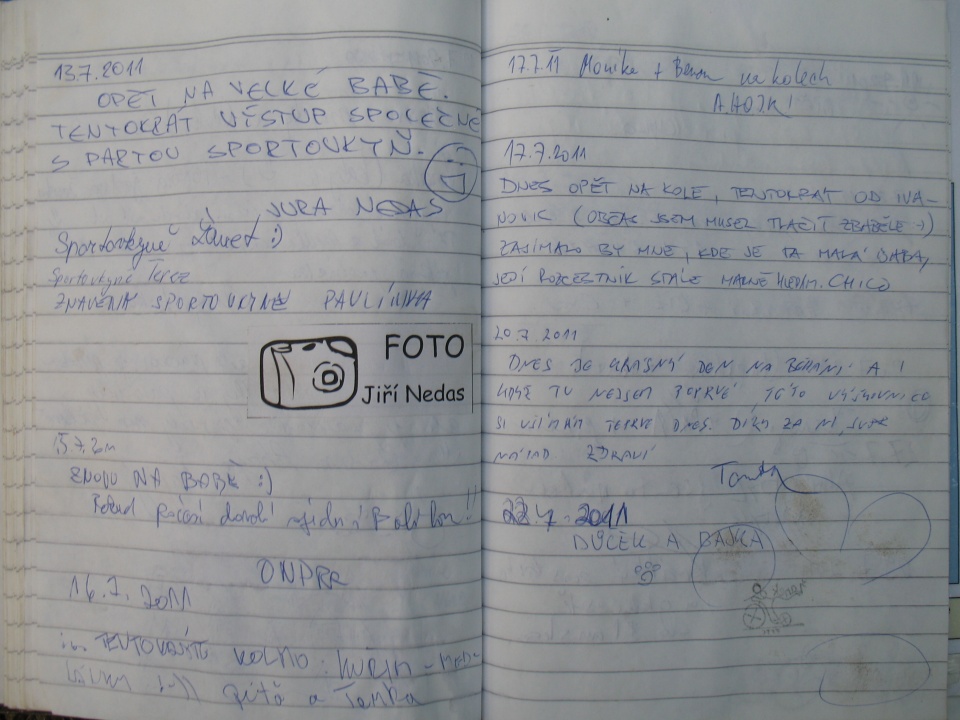 13.7.2011
OPĚT NA VELKÉ BABĚ.
TENTOKRÁT VÝSTUP SPOLEČNĚ
S PARTOU SPORTOVKYŇ.
JURA NEDAS
Sportovkyně Žanet :)
Sportovkyně Terez
ZNAVENÁ SPORTOVKYNĚ PAVLÍNKA
FOTO
Jiří Nedas
15.7.2011
ZNOVU NA BABĚ :)
Pokud počasí dovolí
ONDRA
16.7.2011
... TENTOKRÁTE KOLMO: KUŘIM -
Péťa a Tomka
17.7.11 Monika + na kolech
AHOJK!
17.7.2011
DNES OPĚT NA KOLE, TENTOKRÁT OD IVA-
NOVIC (OBČAS JSEM MUSEL TLAČIT ZBABĚLE :-)
ZAJÍMALO BY MNE, KDE JE TA MALÁ BABA,
JEJÍ ROZCESTNÍK STÁLE MARNĚ HLEDÁM. CHICO
20.7.2011
DNES JE KRÁSNÝ DEN NA BĚHÁNÍ A I
KDYŽ TU NEJSEM POPRVÉ, TÉTO VÝŠKOVNICE
SI VŠÍMÁM TEPRVE DNES. DÍKY ZA NI, SUPR
NÁPAD ZDRAVÍ
22.7.2011
DŮČEK A BAJKA